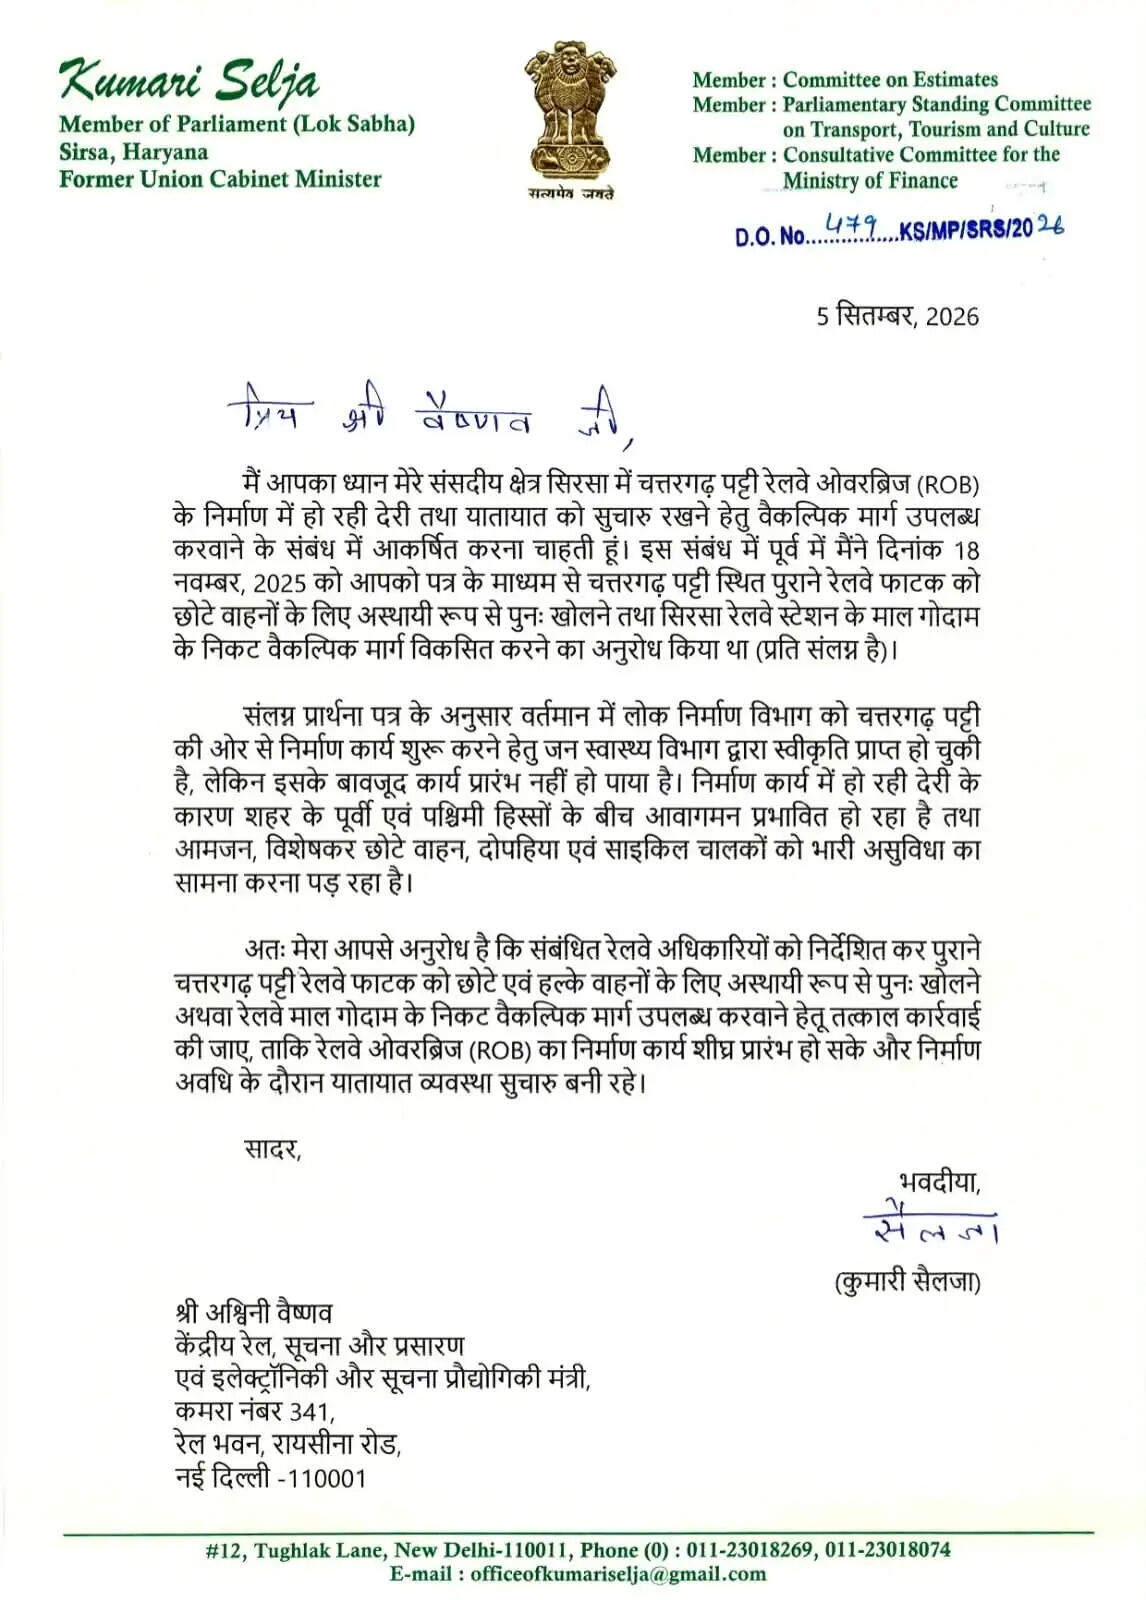 Kumari Selja
Member of Parliament (Lok Sabha)
Sirsa, Haryana
Former Union Cabinet Minister
सत्यमेव जयते
Member : Committee on Estimates
Member : Parliamentary Standing Committee
on Transport, Tourism and Culture
Member : Consultative Committee for the
Ministry of Finance
D.O. No....479....KS/MP/SRS/2026
5 सितम्बर, 2026
प्रिय श्री वैष्णव जी,
मैं आपका ध्यान मेरे संसदीय क्षेत्र सिरसा में चत्तरगढ़ पट्टी रेलवे ओवरब्रिज (ROB)
के निर्माण में हो रही देरी तथा यातायात को सुचारु रखने हेतु वैकल्पिक मार्ग उपलब्ध
करवाने के संबंध में आकर्षित करना चाहती हूं। इस संबंध में पूर्व में मैंने दिनांक 18
नवम्बर, 2025 को आपको पत्र के माध्यम से चत्तरगढ़ पट्टी स्थित पुराने रेलवे फाटक को
छोटे वाहनों के लिए अस्थायी रूप से पुनः खोलने तथा सिरसा रेलवे स्टेशन के माल गोदाम
के निकट वैकल्पिक मार्ग विकसित करने का अनुरोध किया था (प्रति संलग्न है)।
संलग्न प्रार्थना पत्र के अनुसार वर्तमान में लोक निर्माण विभाग को चत्तरगढ़ पट्टी
की ओर से निर्माण कार्य शुरू करने हेतु जन स्वास्थ्य विभाग द्वारा स्वीकृति प्राप्त हो चुकी
है, लेकिन इसके बावजूद कार्य प्रारंभ नहीं हो पाया है। निर्माण कार्य में हो रही देरी के
कारण शहर के पूर्वी एवं पश्चिमी हिस्सों के बीच आवागमन प्रभावित हो रहा है तथा
आमजन, विशेषकर छोटे वाहन, दोपहिया एवं साइकिल चालकों को भारी असुविधा का
सामना करना पड़ रहा है।
अतः मेरा आपसे अनुरोध है कि संबंधित रेलवे अधिकारियों को निर्देशित कर पुराने
चत्तरगढ़ पट्टी रेलवे फाटक को छोटे एवं हल्के वाहनों के लिए अस्थायी रूप से पुनः खोलने
अथवा रेलवे माल गोदाम के निकट वैकल्पिक मार्ग उपलब्ध करवाने हेतू तत्काल कार्रवाई
की जाए, ताकि रेलवे ओवरब्रिज (ROB) का निर्माण कार्य शीघ्र प्रारंभ हो सके और निर्माण
अवधि के दौरान यातायात व्यवस्था सुचारु बनी रहे।
सादर,
भवदीया,
सैलजा
(कुमारी सैलजा)
श्री अश्विनी वैष्णव
केंद्रीय रेल, सूचना और प्रसारण
एवं इलेक्ट्रॉनिकी और सूचना प्रौद्योगिकी मंत्री,
कमरा नंबर 341,
रेल भवन, रायसीना रोड,
नई दिल्ली -110001
#12, Tughlak Lane, New Delhi-110011, Phone (0) : 011-23018269, 011-23018074
E-mail : officeofkumariselja@gmail.com